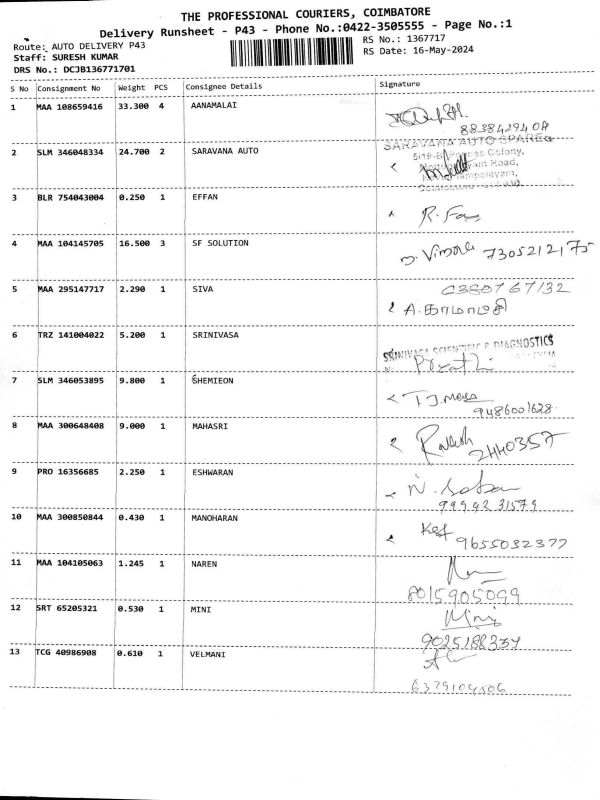 THE PROFESSIONAL COURIERS, COIMBATORE
Delivery Runsheet - P43 - Phone No.:0422-3505555 - Page No.:1
Route: AUTO DELIVERY P43 RS No.: 1367717
Staff: SURESH KUMAR RS Date: 16-May-2024
DRS No.: DCJB136771701
S No Consignment No Weight PCS Consignee Details Signature
1 MAA 108659416 33.300 4 AANAMALAI
SARAVANA AUTO SPARES
2 SLM 346048334 24.700 2 SARAVANA AUTO
3 BLR 754043004 0.250 1 EFFAN
4 MAA 104145705 16.500 3 SF SOLUTION
7305212175
5 MAA 295147717 2.290 1 SIVA
A.காமாட்சி
6 TRZ 141004022 5.200 1 SRINIVASA
SRINIVASA SCIENTIFIC & DIAGNOSTICS
7 SLM 346053895 9.800 1 SHEMIEON
9486001628
8 MAA 300648408 9.000 1 MAHASRI
2440357
9 PRO 16356685 2.250 1 ESHWARAN
99942 31579
10 MAA 300850844 0.430 1 MANOHARAN
9655032377
11 MAA 104105063 1.245 1 NAREN
8015905099
12 SRT 65205321 0.530 1 MINI
Mini
9025188337
13 TCG 40986908 0.610 1 VELMANI
6379104506